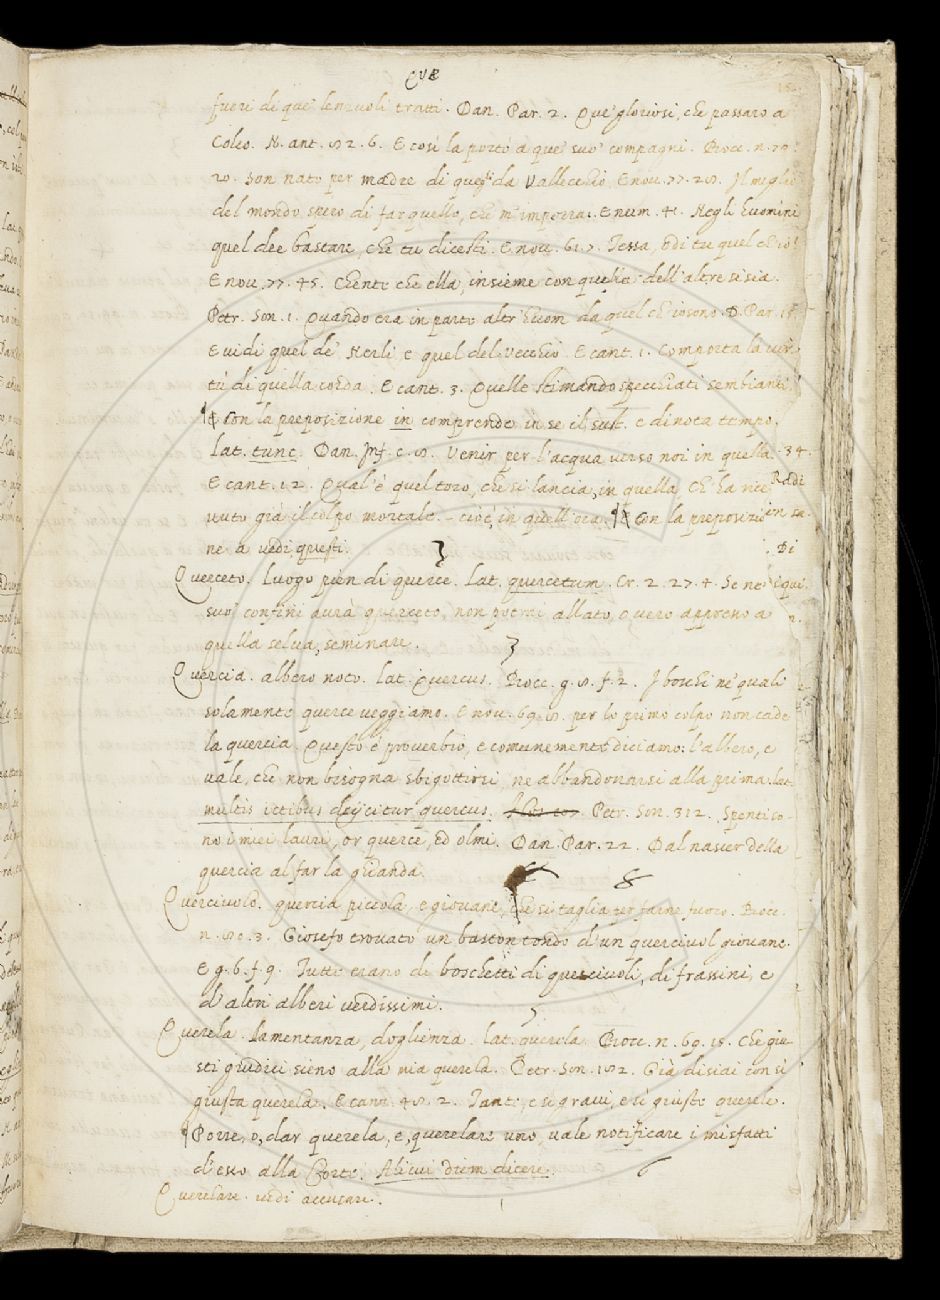 QVE
fuori di que' lenzuoli tratti. Dan. Par. 2. Que' gloriosi, che passaro a
Colco. N. ant. 52. 6. E così la portò a que' suo' compagni. Bocc. n. 79.
20. Son nato per madre di quegli da Vallecchio, E nou. 77. 25. Il meglio
del mondo spero di far quello, che m'imporrai. E num. 41. Negli huomini
quel dee bastare, che tu dicesti. E nou. 61. 7. Tessa, odi tu quel ch'io?
E nou. 77. 45. Chente che ella, insieme con quelle dell'altre si sia.
Petr. Son. 1. Quando era in parte altr'huom da quel ch'io sono. D. Par. 15
E vidi quel de' Nerli e quel del Vecchio. E cant. 1. Comporta la uer
tù di quella corda. E cant. 3. Quelle stimando specchiati sembianti
¶ Con la preposizione in comprende in se il sust. e dinota tempo.
Lat. tunc. Dan. Inf. c. 5. Venir per l'acqua verso noi in quella. 34.
E cant. 12. Qual'è quel toro, che si lancia, in quella, Ch'ha rice
uuto già il colpo mortale. - cioè, in quell'ora. ¶ Con la preposizio
ne a vedi, questi.
Querceto. Luogo pien di querce. Lat. quercetum. Cr. 2. 27. 4. Se ne'
suo' confini aurà querceto, non potrai allato, o uero appresso a
quella selua, seminare.
Quercia. albero noto. Lat. Quercus. Bocc. g. 5. f. 2. I boschi ne' quali
solamente querce veggiamo. E nou. 69. 5. per lo primo colpo non cade
la quercia. Questo è prouerbio, e comunemente diciamo: l'albero, e
vale, che non bisogna sbigottirsi, ne abbandonarsi alla prima. Lat.
multis ictibus deijcitur quercus. Petr. Son. 312. Spenti so-
no i miei lauri, or querce, ed olmi. Dan. Par. 22. Dal nascer della
quercia al far la ghianda.
Querciuolo. quercia piccola, e giouane, che si taglia per farne fuoco. Bocc.
n. 80. 3. Giosefo trouato un baston tondo d'un querciuol giouane.
E g. 6. f. 9. Tutte erano di boschetti di querciuoli, di frassini, e
d'altri alberi verdissimi.
Querela. lamentanza, doglienza. lat. querela. Bocc. n. 69. 15. Che giu-
sti giudici sieno alla mia querela. Petr. Son. 182. Già disiai con sì
giusta querela. E canz. 48. 2. Tante, e sì graui, e sì giuste querele.
¶ Porre, o, dar querela, e, querelare uno, vale notificare i misfatti
d'esso alla Corte. Alicui diem dicere.
Querelare. vedi accusare.